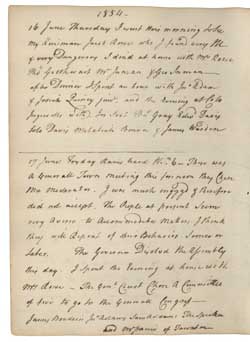 1884.
16 June Thursday I went this morning to see
my Kinsman Jacob Rowe who I found very ill
& very Dangerous I dined at home with Mrs Rowe
after Dinner I spent an hour with
& Josiah Quincy and the evening at
with Gray Edes
Sol: Davis Malatiah Bourn & James Warden
17 June Fryday Rains hard Wind E. There was
a Generall Town meeting this forenoon they Chose
Me Moderator. I was much engaged & therefore
did not accept. The People at present seem
very averse to Accommodate Matters. I think
they will Repent of this Behaviour Sooner or
Later. The Governour Disolved the Assembly
this day. I spent the evening at home with
Mrs Rowe — The Gen.l Court Chose a Committee
of five to go to the Generall Congress
James Bowdoin Jno Adams Sam Adams The Speaker
and Mr Paine of Taunton